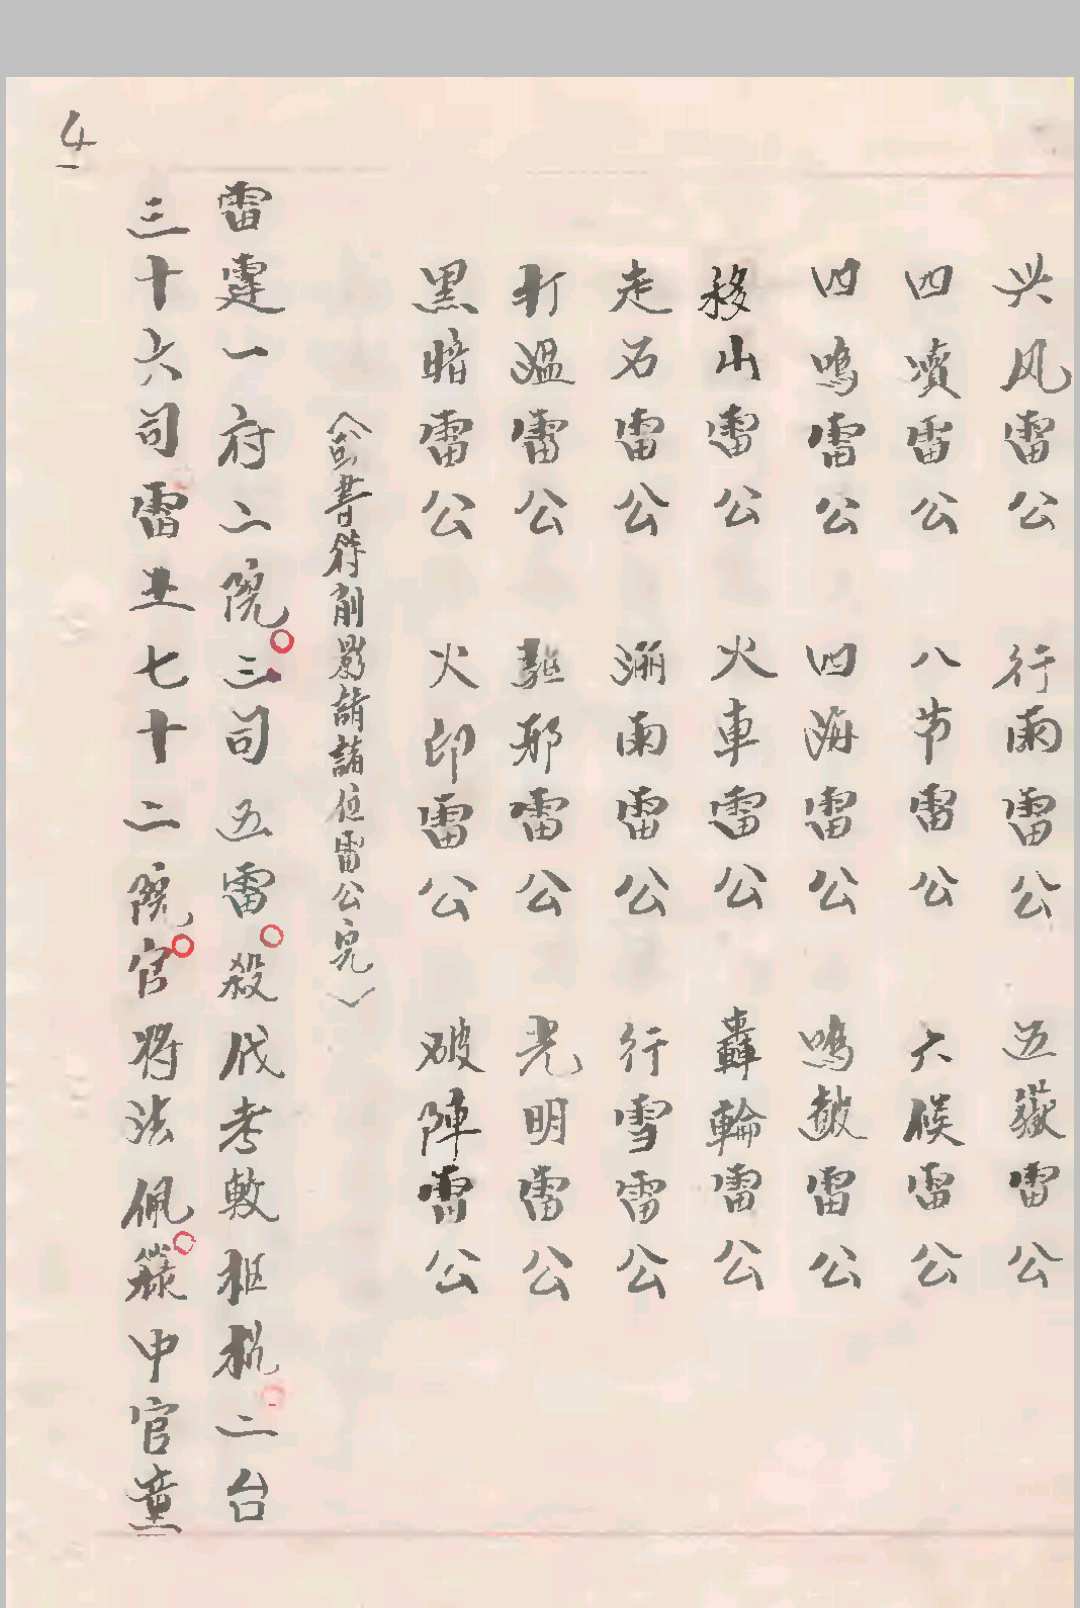 兴风雷公 行雨雷公 五嶽雷公
四瀆雷公 八节雷公 大候雷公
四鳴雷公 四海雷公 鳴鼓雷公
移山雷公 火車雷公 轟輪雷公
走石雷公 雨雷公 行雪雷公
打瘟雷公 駆邪雷公 光明雷公
黑暗雷公 火印雷公 破陣雷公
書符前影請諸位雷公完
雷霆一府二院三司五雷殺伐考較枢机二台
三十六司雷主七十二院官将法佩籙中官童
4